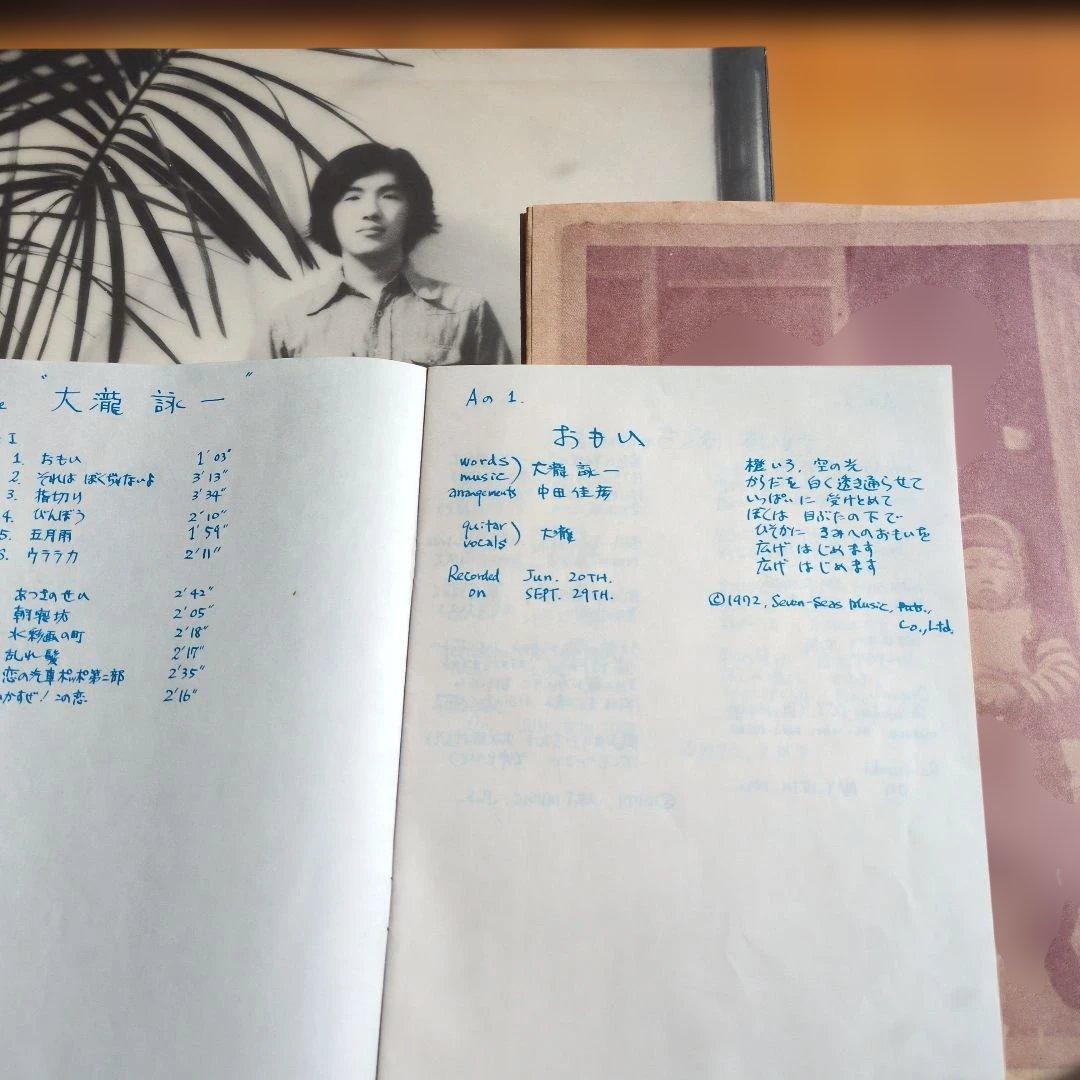 " 大瀧 詠一 "
I
1. おもい 1'03"
2. それは ぼくぢゃないよ 3'13"
3. 指切り 3'34"
4. びんぼう 2'10"
5. 五月雨 1'59"
6. ウララカ 2'11"
あつさのせい 2'42"
朝寝坊 2'05"
水彩画の町 2'18"
乱れ髪 2'17"
恋の汽車ポッポ第二部 2'35"
かすぜ! この恋 2'16"
Aの 1.
おもい
words
music) 大瀧 詠一
arrangements 中田佳彦
guitar
vocals) 大瀧
Recorded on Jun. 20TH.
SEPT. 29TH.
橙いろ、空の光
からだを 白く透き通らせて
いっぱいに 受けとめて
ぼくは 目ぶたの下で
ひそかに きみへのおもいを
広げ はじめます
広げ はじめます
©1972, Seven-Seas Music, Pub.,
Co., Ltd.